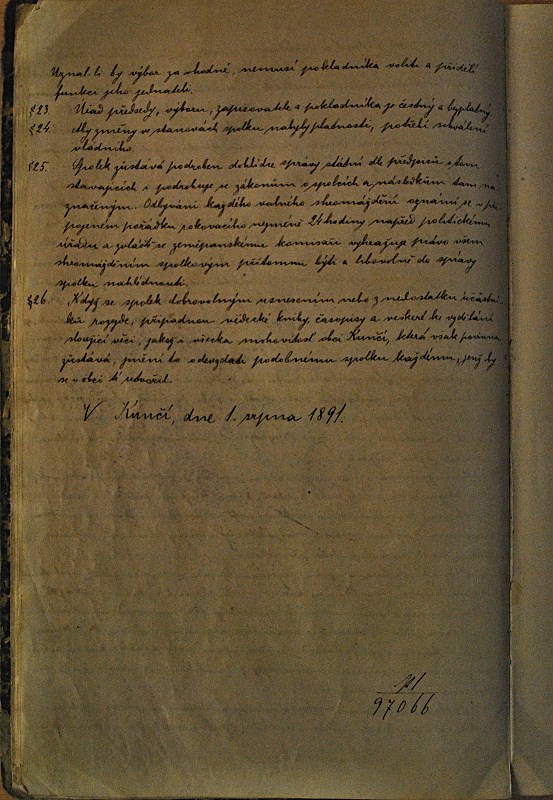 Uznal-li by výbor za vhodné, nemusí pokladníka voliti a přidělí
funkci jeho jednateli.
§ 23 Úřad předsedy, výboru, zapisovatele a pokladníka je čestný a bezplatný
§ 24. Aby změny ve stanovách spolku nabyly platnosti, potřebí schválení
vládního.
§ 25. Spolek zůstává podroben dohlídce správy státní dle předpisů o tom
stávajících i podrobuje se zákonům o spolcích a následkům tam na
značeným. Odbývání každého valného shromáždění oznámí se v při
pojeném pořádku rokovacího nejméně 24 hodiny napřed politickému
úřadu a zvláště se zeměpanskému komisaři vyhrazuje právo všem
shromážděním spolkovým přítomnu býti a libovolně do správy
spolku nahlédnouti.
§ 26. Když se spolek dobrovolným usnesením nebo z nedostatku účastní-
ků rozejde, připadnou vědecké knihy, časopisy a veškeré ke vzdělání
sloužící věci, jakož i všecka mohovitost obci Kunčí, která však povinna
zůstává, jmění to odevzdati podobnému spolku každému, jenž by
se v obci té utvořil.
V Kunčí, dne 1. srpna 1891.
97066